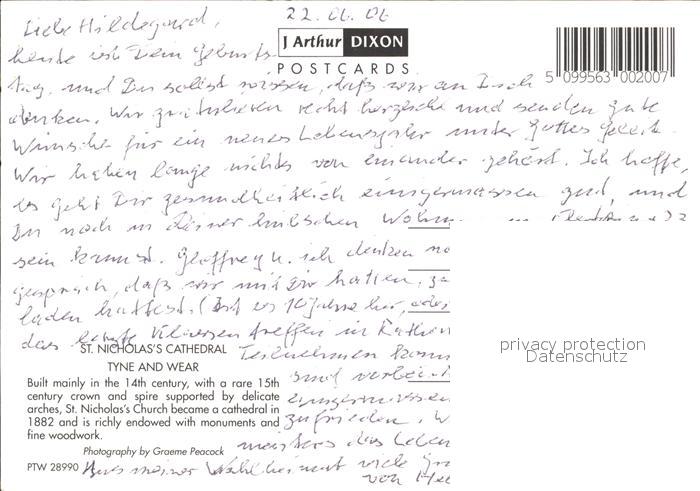 22.06.06
Liebe Hildegard,
heute ist Dein Geburts-
J Arthur DIXON
POSTCARDS
5 099563 002007
tag, und Du sollst wissen, daß wir an Dich
denken. Wir gratulieren recht herzlich und senden gute
Wünsche für ein neues Lebensjahr unter Gottes Geleit.
Wir haben lange nichts von einander gehört. Ich hoffe,
es geht Dir gesundheitlich einigermassen gut, und
Du noch in Deiner hübschen Wohn
sein kannst. Geoffrey u. ich denken no
gespräch, daß wir mit Dir hatten,
laden hattest. (Ist es 10 Jahre her, oder
das letzte treffen in
ST. NICHOLAS'S CATHEDRAL
TYNE AND WEAR
Built mainly in the 14th century, with a rare 15th
century crown and spire supported by delicate
arches, St. Nicholas's Church became a cathedral in
1882 and is richly endowed with monuments and
fine woodwork.
Photography by Graeme Peacock
PTW 28990
Teilnehmen
sind
einigermassen
zufrieden. W
meistens das Leben
Aus meiner Wahlheimat viele Gr
von
privacy protection
Datenschutz